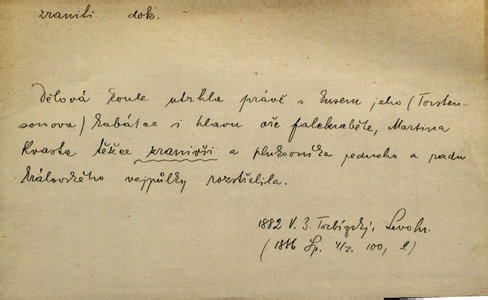 zraniti dok.
Dělová koule utrhla právě s kusem jeho (Torsten-
sonova) kabátce i hlavu oře falckraběte, Martina
Kvasta těžce zranivši a plukovníka jednoho a radu
královského vejpůlky rozstřelila.
1882 V. B. Třebízský,
(1886 Sp. 4/2. 100,